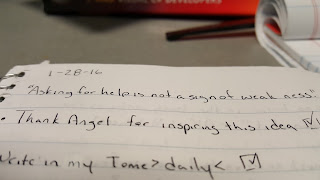 1-28-16
"Asking for help is not a sign of weakness."
• Thank Angel for inspiring this idea ☑
Write in my Tome >daily< ☑